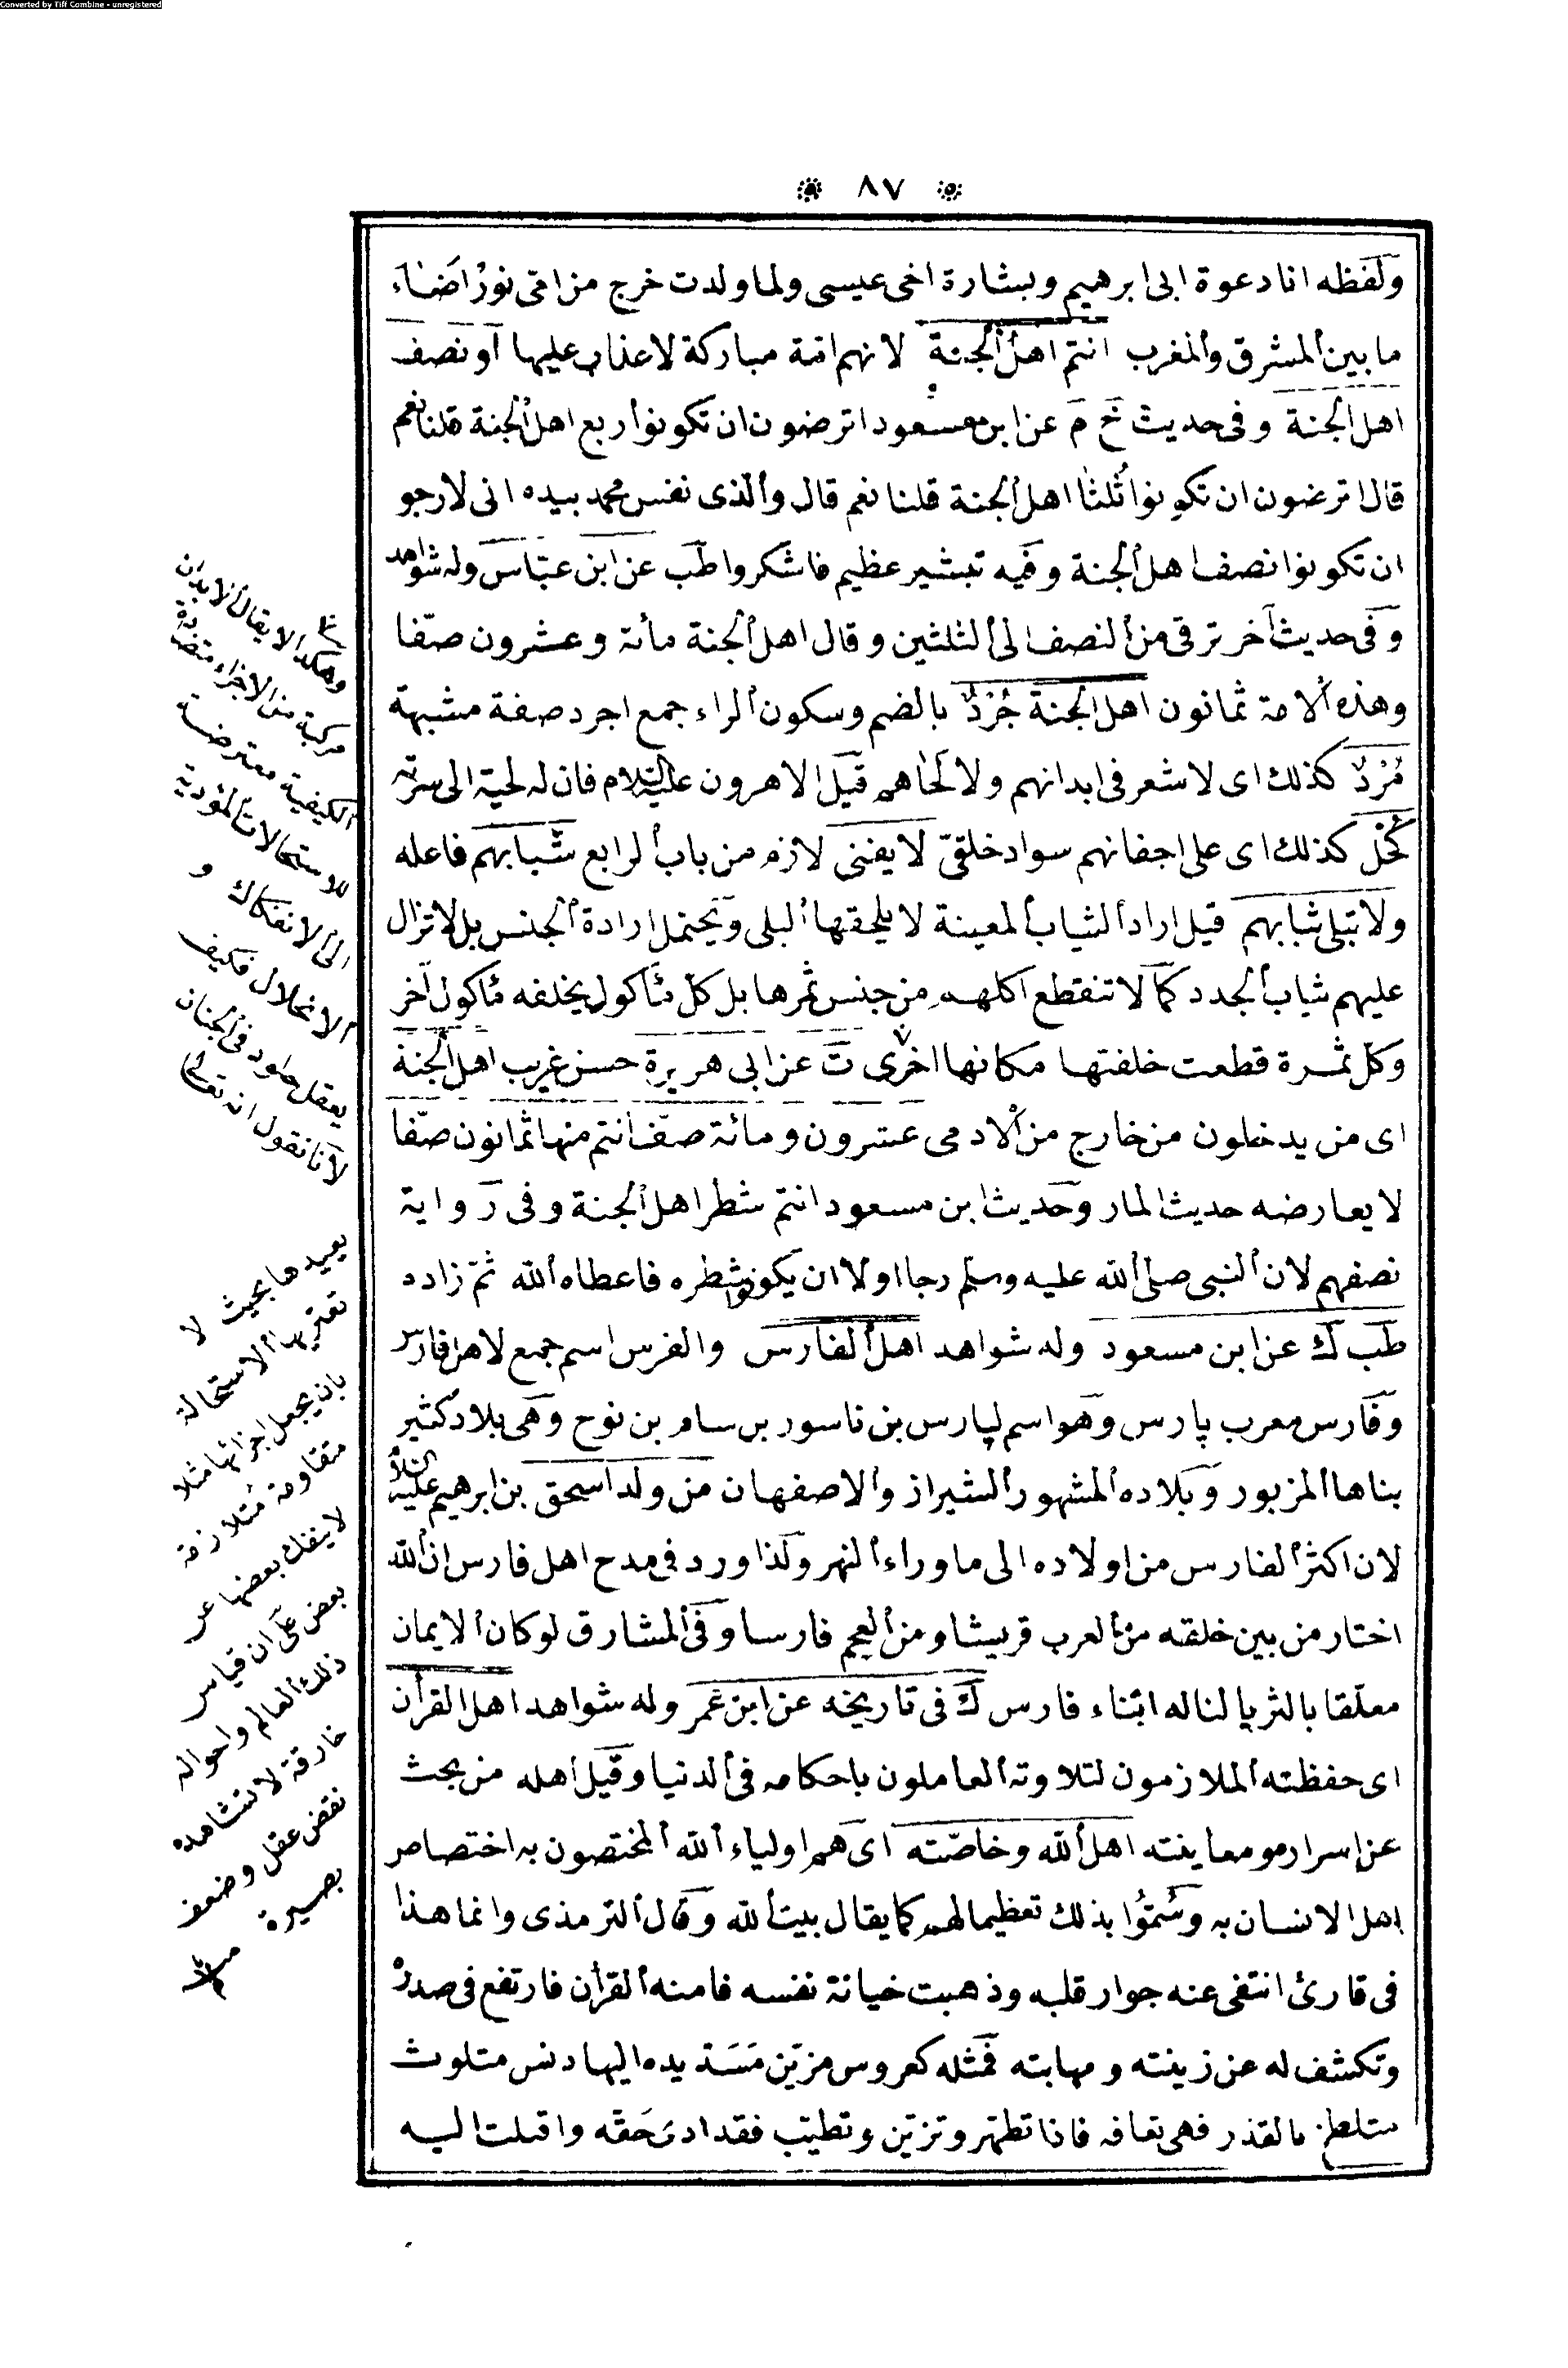 Converted by Tiff Combine - unregistered
٨٧
ولفظه انا دعوة ابى ابرهيم وبشارة اخى عيسى ولما ولدت خرج من امى نور اضاء
ما بين المشرق والمغرب انتم اهل الجنة لانهم امة مباركة لا عذاب عليها او نصف
اهل الجنة وفى حديث خ م عن ابن مسعود اترضون ان تكونوا ربع اهل الجنة قلنا نعم
قال اترضون ان تكونوا ثلثا اهل الجنة قلنا نعم قال والذى نفس محمد بيده انى لارجو
ان تكونوا نصف اهل الجنة وفيه تبشير عظيم فاشكروا طب عن ابن عباس وله شواهد
وفى حديث آخر ترقى من النصف الى الثلثين وقال اهل الجنة مائة وعشرون صفا
وهذه الامة ثمانون اهل الجنة جُرْدٌ بالضم وسكون الراء جمع اجرد صفة مشبهة
مُرْدٌ كذلك اى لا شعر فى ابدانهم ولا لحاهم قيل الا هرون عليه السلام فان له لحية الى سرته
كُحْلٌ كذلك اى على اجفانهم سواد خلقىّ لا يفنى لازم من باب الرابع شبابهم فاعله
ولا تبلى ثيابهم قيل اراد الثياب المعينة لا يلحقها البلى ويحتمل ارادة الجنس بل لا تزال
عليهم ثياب الجدد كما لا تنقطع اكلهم من جنس ثمرها بل كل مأكول يخلفه مأكول آخر
وكل ثمرة قطعت خلفتها مكانها اخرى ت عن ابى هريرة حسن غريب اهل الجنة
اى من يدخلون من خارج من الادمى عشرون ومائة صف انتم منها ثمانون صفا
لا يعارضه حديث المار وحديث ابن مسعود انتم شطر اهل الجنة وفى رواية
نصفهم لان النبى صلى الله عليه وسلم رجا اولا ان يكونوا شطره فاعطاه الله ثم زاده
طب ك عن ابن مسعود وله شواهد اهل الفارس والفرس اسم جمع لاهل فارس
وفارس معرب پارس وهو اسم لپارس بن ناسور بن سام بن نوح وهى بلاد كثير
بناها المزبور وبلاده المشهور الشيراز والاصفهان من ولد اسحق بن ابرهيم عليه السلام
لان اكثر الفارس من اولاده الى ماوراء النهر ولذا ورد فى مدح اهل فارس ان الله
اختار من بين خلقه من العرب قريشا ومن العجم فارسا وفى المشارق لو كان الايمان
معلقا بالثريا لناله ابناء فارس ك فى تاريخه عن ابن عمر وله شواهد اهل القرأن
اى حفظته الملازمون لتلاوته العاملون باحكامه فى الدنيا وقيل اهله من بحث
عن اسراره ومعاينته اهل الله وخاصته اى هم اولياء الله المختصون به اختصاص
اهل الانسان به وسُمّوا بذلك تعظيما لهم كما يقال بيت الله وقال الترمذى وانما هذا
فى قارئ انتفى عنه جوار قلبه وذهبت خيانة نفسه فامنه القرأن فارتفع فى صدره
وتكشف له عن زينته ومهابته فمثله كعروس مزين مَسَّ يده اليها دنس متلوث
متلطخ بالقذر فهى تعافه فاذا تطهر وتزين وتطيب فقد ادى حقه واقبلت اليه
وهكذا لا يقال الابدان
مركبة من الاجزاء متضادة
الكيفية معترضة
للاستحالات المؤدية
الى الانفكاك و
الانحلال فكيف
يعقل خلود فى الجنان
لانا نقول انه تعالى
يعيدها بحيث لا
تعتريها الاستحالة
بان يجعل اجزائها مثلا
متقاومة متلازمة
لا ينفك بعضها عن
بعض على ان قياس
ذلك العالم واحواله
خارقة لا نشاهده
نقض عقل وضعف
بصيرة